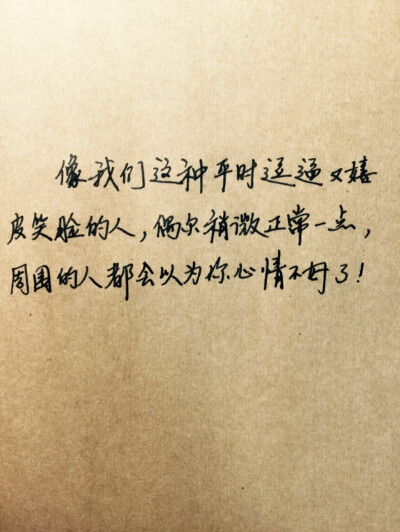 像我们这种平时逗逼又嬉
皮笑脸的人，偶尔稍微正常一点，
周围的人都会以为你心情不好了！